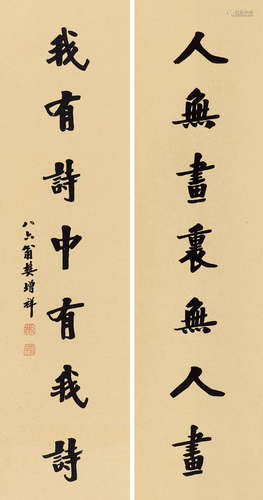 人無畫裏無人畫
我有詩中有我詩
八六翁樊增祥